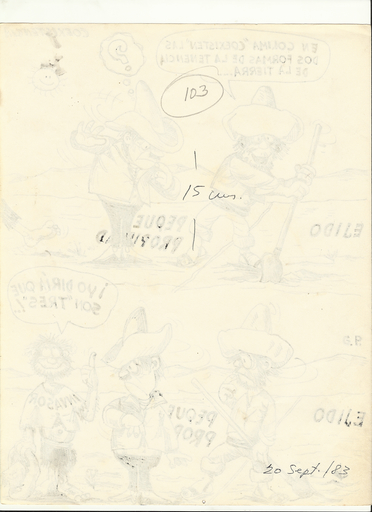 EN COLIMA "COEXISTEN" LAS
DOS FORMAS DE LA TENENCIA
DE LA TIERRA...
?
103
15 cms.
PEQUE
PROPIEDAD
EJIDO
¡YO DIRÍA QUE
SON "TRES"!..
PEQUE
PROP
EJIDO
20 Sept./83